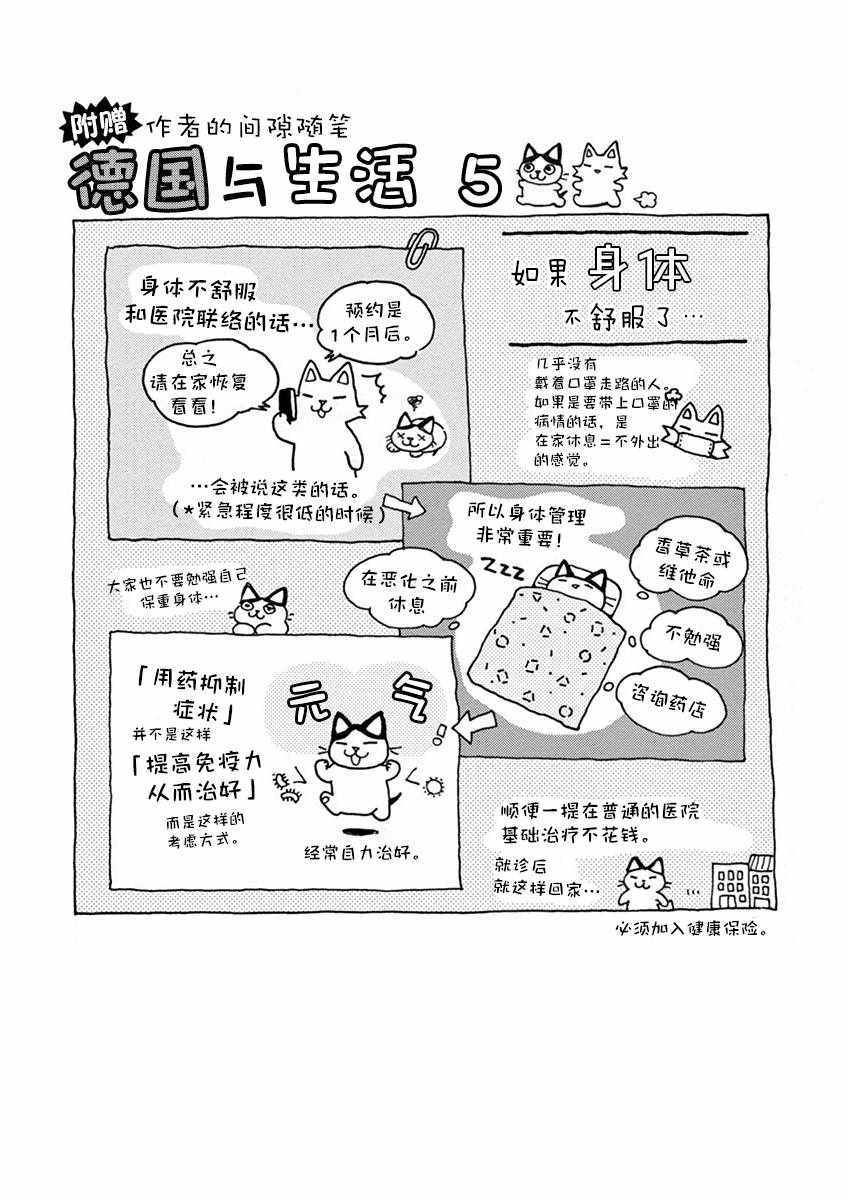 附赠
作者的间隙随笔
德国与生活 5
如果身体
不舒服了…
几乎没有
戴着口罩走路的人。
如果是要带上口罩的
病情的话，是
在家休息=不外出
的感觉。
身体不舒服
和医院联络的话…
预约是
1个月后。
总之
请在家恢复
看看！
…会被说这类的话。
（*紧急程度很低的时候）
所以身体管理
非常重要！
zzz
香草茶或
维他命
不勉强
咨询药店
在恶化之前
休息
大家也不要勉强自己
保重身体…
「用药抑制
症状」
并不是这样
「提高免疫力
从而治好」
而是这样的
考虑方式。
元气
经常自力治好。
顺便一提在普通的医院
基础治疗不花钱。
就诊后
就这样回家…
…
必须加入健康保险。